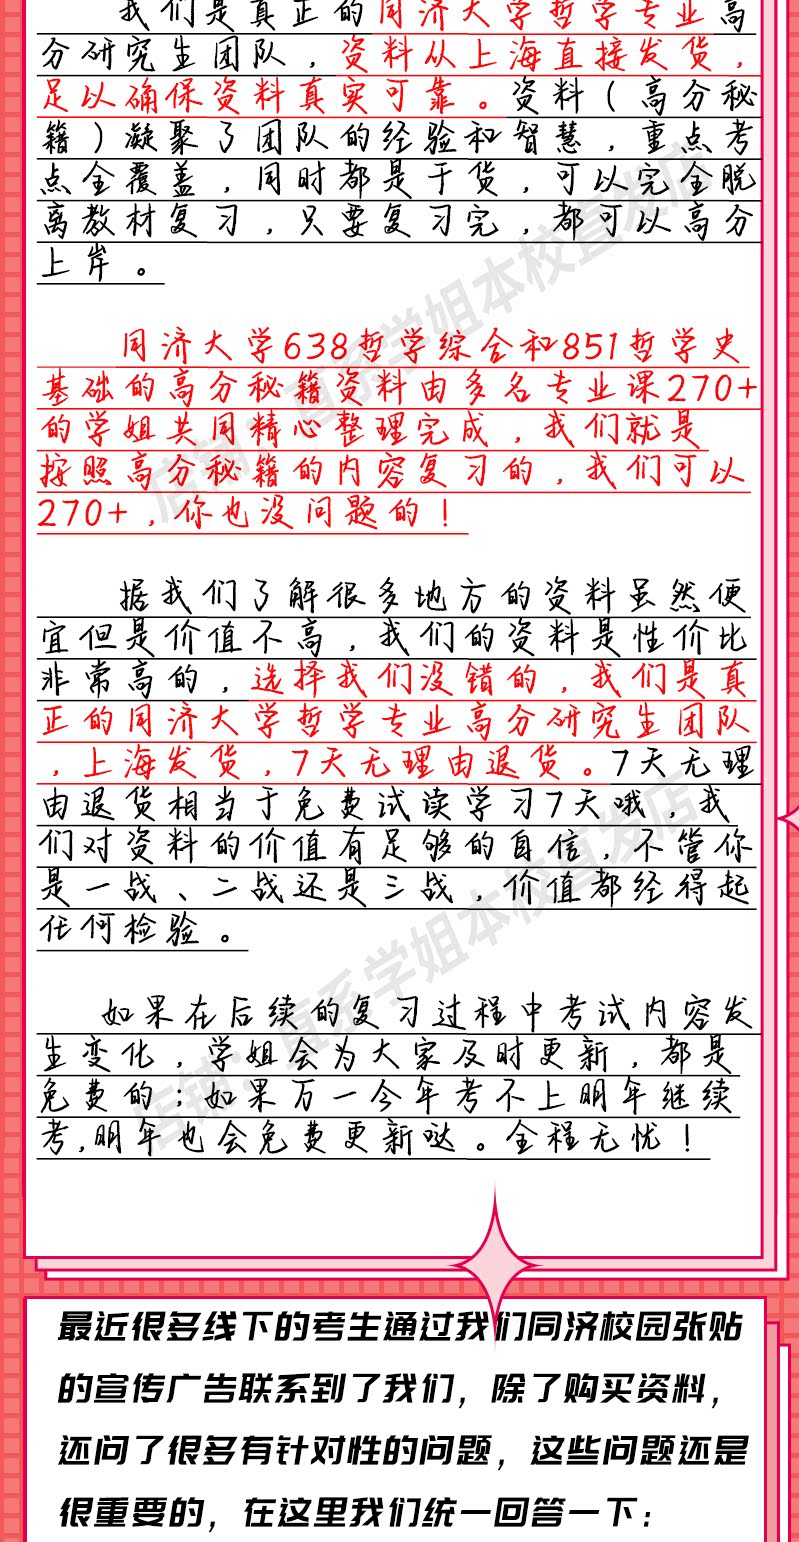 我们是真正的同济大学哲学专业高
分研究生团队，资料从上海直接发货，
足以确保资料真实可靠。资料（高分秘
籍）凝聚了团队的经验和智慧，重点考
点全覆盖，同时都是干货，可以完全脱
离教材复习，只要复习完，都可以高分
上岸。
同济大学638哲学综合和851哲学史
基础的高分秘籍资料由多名专业课270+
的学姐共同精心整理完成，我们就是
按照高分秘籍的内容复习的，我们可以
270+，你也没问题的！
据我们了解很多地方的资料虽然便
宜但是价值不高，我们的资料是性价比
非常高的，选择我们没错的，我们是真
正的同济大学哲学专业高分研究生团队
，上海发货，7天无理由退货。7天无理
由退货相当于免费试读学习7天哦，我
们对资料的价值有足够的自信，不管你
是一战、二战还是三战，价值都经得起
任何检验。
如果在后续的复习过程中考试内容发
生变化，学姐会为大家及时更新，都是
免费的；如果万一今年考不上明年继续
考,明年也会免费更新哒。全程无忧！
最近很多线下的考生通过我们同济校园张贴
的宣传广告联系到了我们，除了购买资料，
还问了很多有针对性的问题，这些问题还是
很重要的，在这里我们统一回答一下：
店铺：直系学姐本校直发店
店铺：直系学姐本校直发店